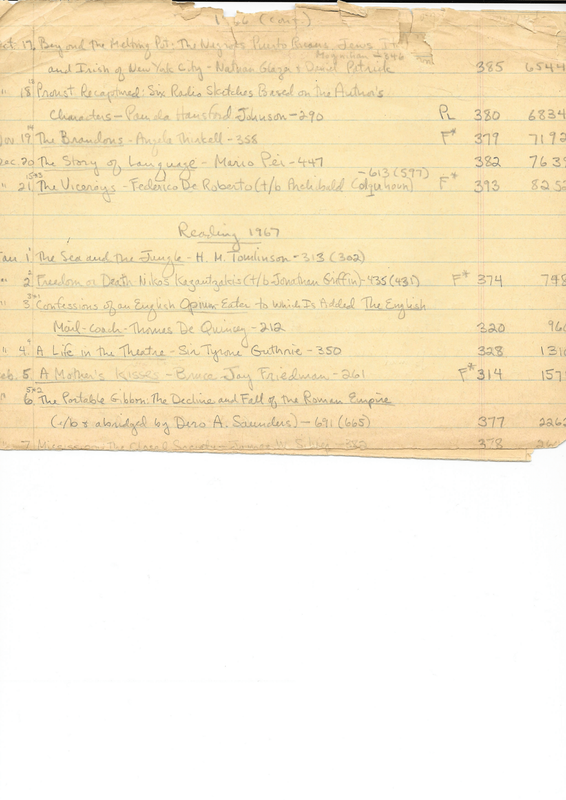 1966 (cont.)
Oct 17 Beyond the Melting Pot: The Negroes, Puerto Ricans, Jews,
Moynihan - 346
and Irish of New York City - Nathan Glazer & Daniel Patrick 385 6544
" 18 Proust Recaptured: Six Radio Sketches Based on the Author's
Characters - Pamela Hansford Johnson - 290 PL 380 6834
Nov 19 The Brandons - Angela Thirkell - 358 F* 379 7192
Dec. 20 The Story of Language - Mario Pei - 447 382 763
- 613 (597)
" 21 The Viceroys - Federico De Roberto (t/b Archibald Colquhoun) F* 393 825
Reading 1967
Jan 1 The Sea and the Jungle - H. M. Tomlinson - 313 (302)
" 2 Freedom or Death - Nikos Kazantzakis (t/b Jonathan Griffin) - 435 (431) F* 374 748
" 3 Confessions of an English Opium-Eater to Which Is Added The English
Mail-Coach - Thomas De Quincey - 212 320 960
" 4 A Life in the Theatre - Sir Tyrone Guthrie - 350 328 1310
Feb. 5 A Mother's Kisses - Bruce Jay Friedman - 261 F* 314 157
" 6 The Portable Gibbon: The Decline and Fall of the Roman Empire
(i/b & abridged by Dero A. Saunders) - 691 (665) 377 2262
7 - James W. - 382 378